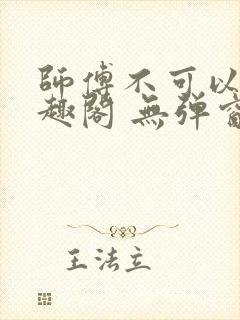 師傅不可以
趣閣 無彈窗
王法立